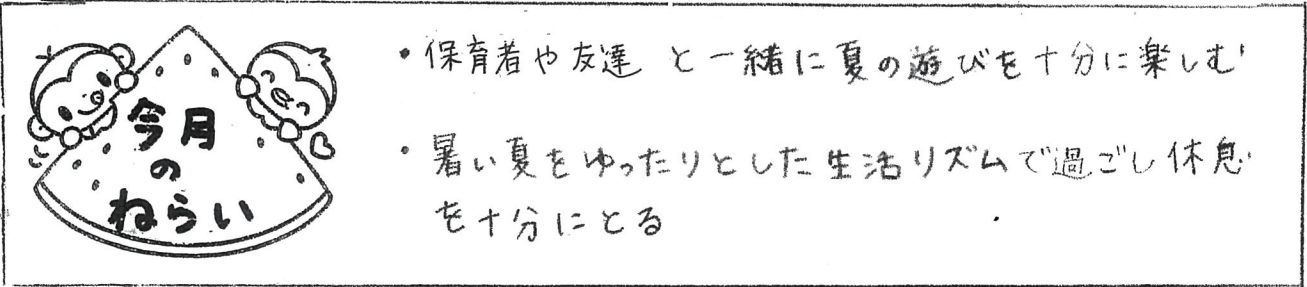 今月
の
ねらい
・保育者や友達と一緒に夏の遊びを十分に楽しむ
・暑い夏をゆったりとした生活リズムで過ごし休息
を十分にとる